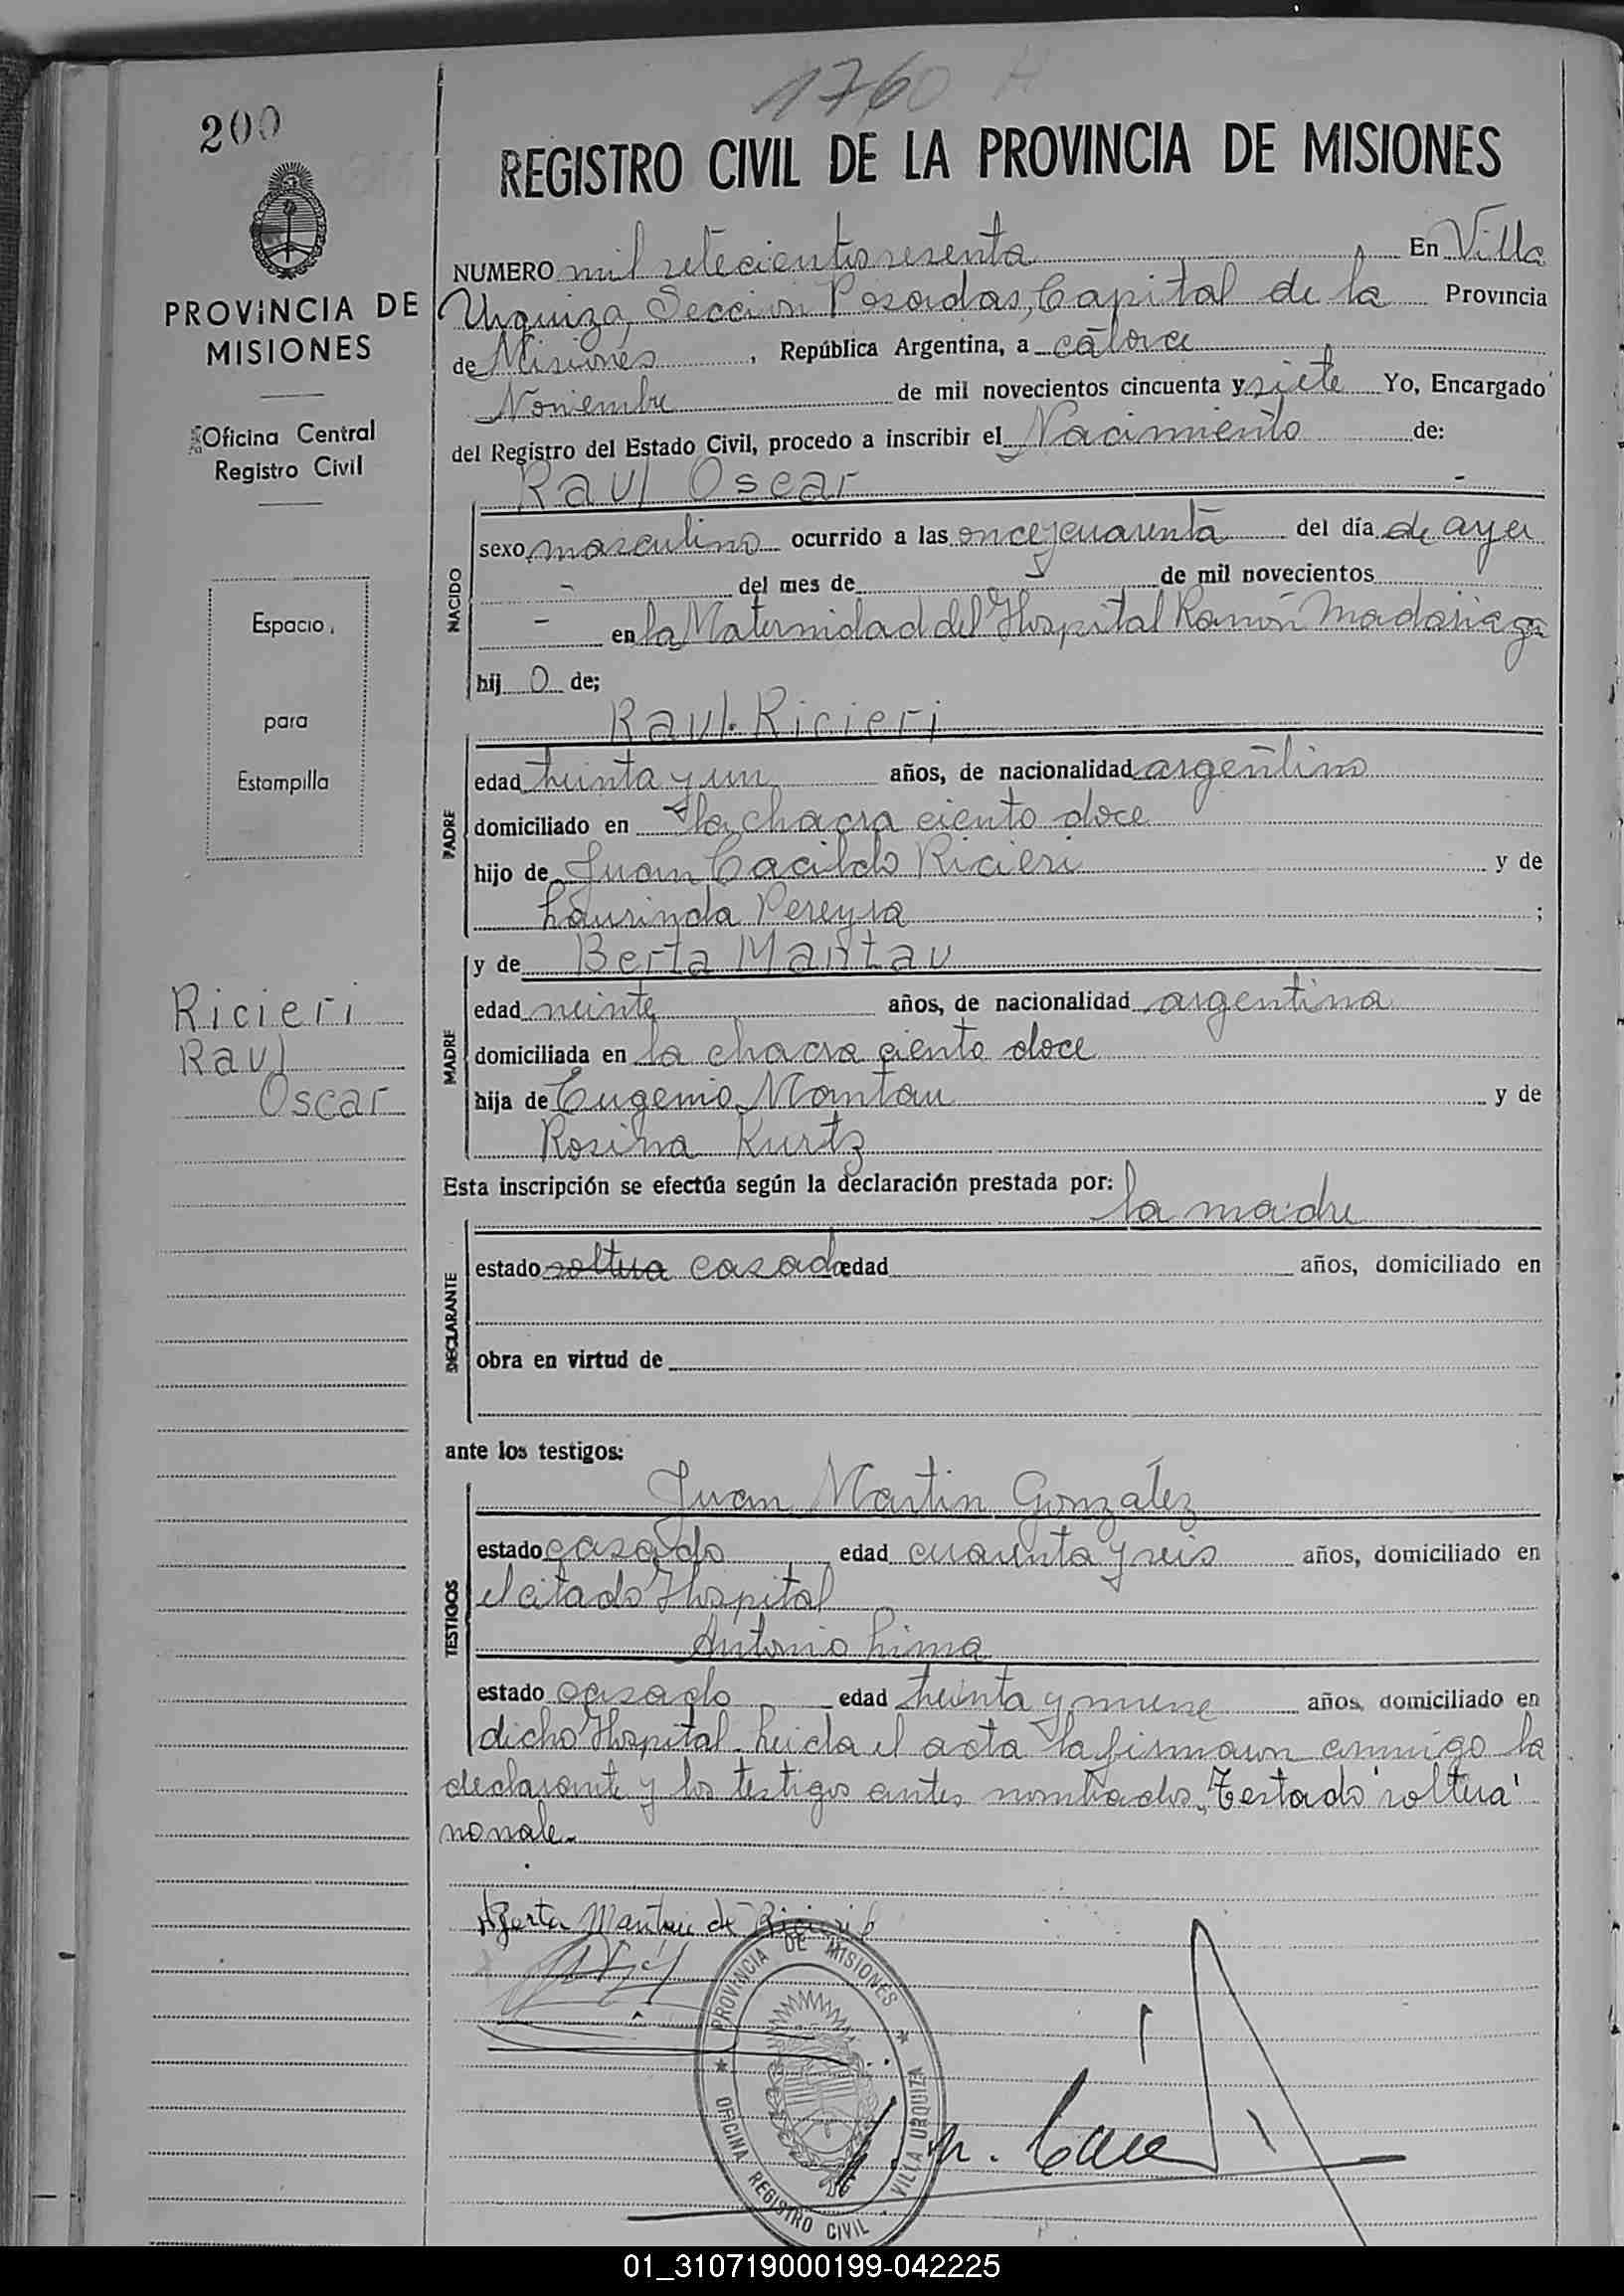 1760
200
REGISTRO CIVIL DE LA PROVINCIA DE MISIONES
PROVINCIA DE
MISIONES
Oficina Central
Registro Civil
Espacio
para
Estampilla
Ricieri
Raul
Oscar
NUMERO mil setecientos sesenta En Villa
Urquiza, Seccion Posadas, Capital de la Provincia
de Misiones, República Argentina, a catorce
Noviembre de mil novecientos cincuenta y siete Yo, Encargado
del Registro del Estado Civil, procedo a inscribir el Nacimiento de:
Raul Oscar -
NACIDO
sexo masculino ocurrido a las once y cuarenta del día de ayer
- del mes de - de mil novecientos
- en la Maternidad del Hospital Ramón Madariaga
hij o de;
Raul Ricieri
PADRE
edad treinta y un años, de nacionalidad argentino
domiciliado en la chacra ciento doce
hijo de Juan Cacildo Ricieri y de
Laurinda Pereyra ;
y de Berta Mantau
MADRE
edad veinte años, de nacionalidad argentina
domiciliada en la chacra ciento doce
hija de Eugenio Mantau y de
Rosina Kurtz
Esta inscripción se efectúa según la declaración prestada por:
la madre
DECLARANTE
estado soltera casada edad años, domiciliado en
obra en virtud de
ante los testigos:
Juan Martin González
TESTIGOS
estado casado edad cuarenta y seis años, domiciliado en
el citado Hospital
Antonio Lima
estado casado edad treinta y nueve años, domiciliado en
dicho Hospital. Leida el acta la firmaron conmigo la
declarante y los testigos antes nombrados. Testado "soltera"
no vale.
Berta Mantau de Ricieri
PROVINCIA DE MISIONES
OFICINA REGISTRO CIVIL VILLA URQUIZA
01_310719000199-042225